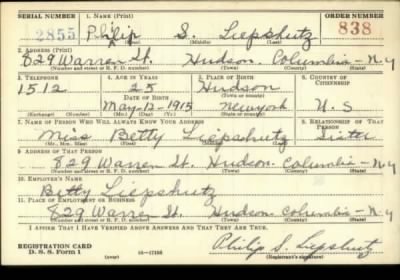 SERIAL NUMBER 1. NAME (Print) ORDER NUMBER
2855 Philip S. Liepshutz 838
(First) (Middle) (Last)
2. ADDRESS (Print)
829 Warren St. Hudson. Columbia - N.Y
(Number and street or R. F. D. number) (Town) (County) (State)
3. TELEPHONE 4. AGE IN YEARS 5. PLACE OF BIRTH 6. COUNTRY OF CITIZENSHIP
1512 25 Hudson
DATE OF BIRTH (Town or county)
May-12-1915 New york U.S
(Exchange) (Number) (Mo.) (Day) (Yr.) (State or country)
7. NAME OF PERSON WHO WILL ALWAYS KNOW YOUR ADDRESS 8. RELATIONSHIP OF THAT PERSON
Miss Betty Liepshutz Sister
(Mr., Mrs., Miss) (First) (Middle) (Last)
9. ADDRESS OF THAT PERSON
829 Warren St. Hudson. Columbia - N.Y
(Number and street or R. F. D. number) (Town) (County) (State)
10. EMPLOYER'S NAME
Betty Liepshutz
11. PLACE OF EMPLOYMENT OR BUSINESS
829 Warren St. Hudson. Columbia - N.Y
(Number and street or R. F. D. number) (Town) (County) (State)
I AFFIRM THAT I HAVE VERIFIED ABOVE ANSWERS AND THAT THEY ARE TRUE.
REGISTRATION CARD Philip S. Liepshutz
D. S. S. Form 1 (over) 16-17105 (Registrant's signature)